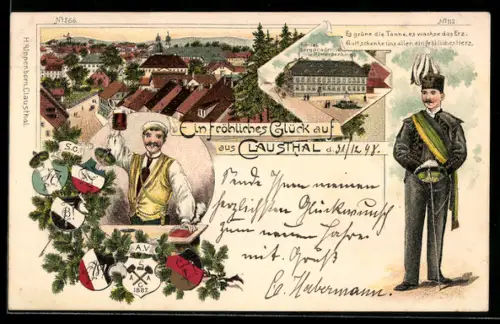 No 264.
No 113
Es grüne die Tanne, es wachse das Erz,
Gott schenke uns allen ein fröhliches Herz.
H. Uppenborn, Clausthal.
Ein fröhliches Glück auf
aus CLAUSTHAL d. 31/12 98.
S.C.
Sende Ihnen meinen
herzlichsten Glückwunsch
zum neuen Jahre
mit Gruß
C. Habermann.
A.V.
1887